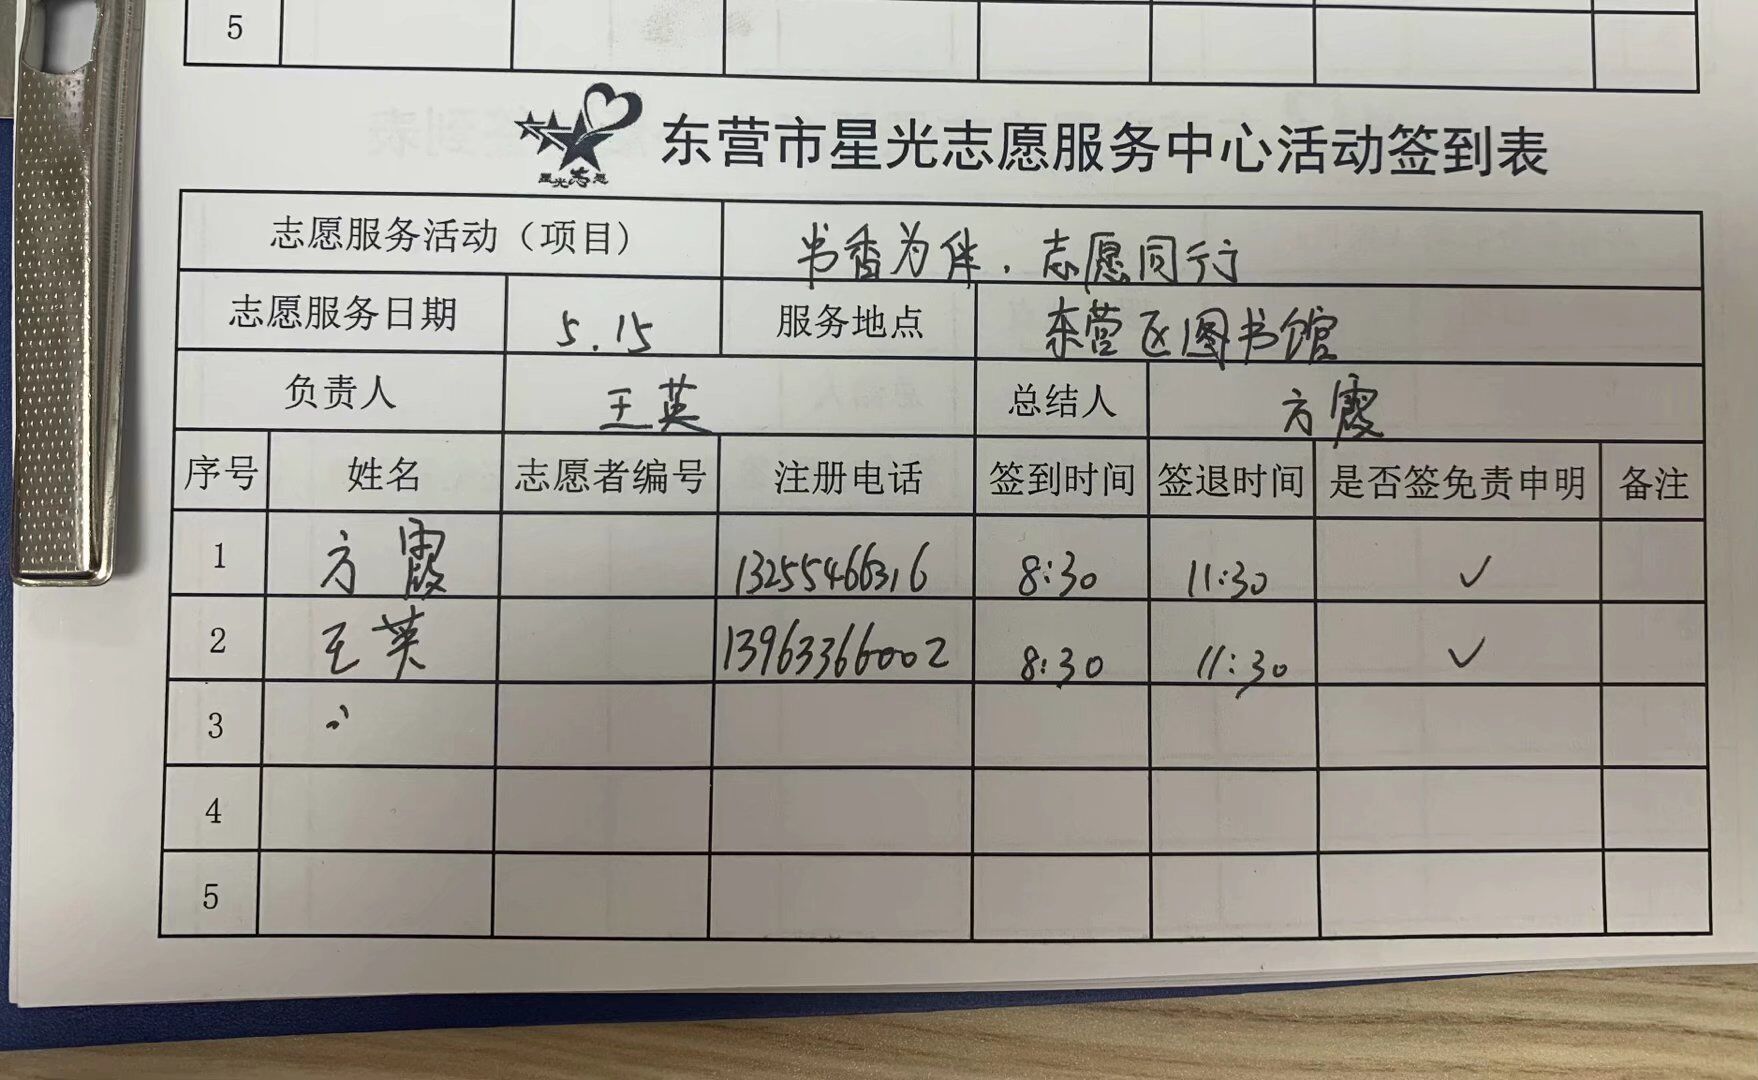 5
星光志愿
东营市星光志愿服务中心活动签到表
志愿服务活动（项目） 书香为伴，志愿同行
志愿服务日期 5.15 服务地点 东营区图书馆
负责人 王英 总结人 方霞
序号 姓名 志愿者编号 注册电话 签到时间 签退时间 是否签免责申明 备注
1 方霞 13255466316 8:30 11:30 ✓
2 王英 13963366002 8:30 11:30 ✓
3
4
5